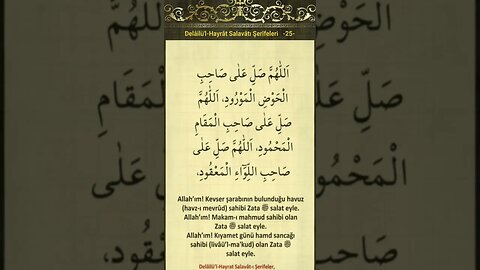 Delâilü'l-Hayrât Salavâtı Şerifeleri -25-
اَللّٰهُمَّ صَلِّ عَلٰى صَاحِبِ
الْحَوْضِ الْمَوْرُودِ، اَللّٰهُمَّ
صَلِّ عَلٰى صَاحِبِ الْمَقَامِ
الْمَحْمُودِ، اَللّٰهُمَّ صَلِّ عَلٰى
صَاحِبِ اللِّوَٓاءِ الْمَعْقُودِ،
Allah'ım! Kevser şarabının bulunduğu havuz
(havz-ı mevrûd) sahibi Zata ﷺ salat eyle.
Allah'ım! Makam-ı mahmud sahibi olan
Zata ﷺ salat eyle.
Allah'ım! Kıyamet günü hamd sancağı
sahibi (livâü'l-ma'kud) olan Zata ﷺ
salat eyle.
Delâilü'l-Hayrat Salavât-ı Şerifeler,